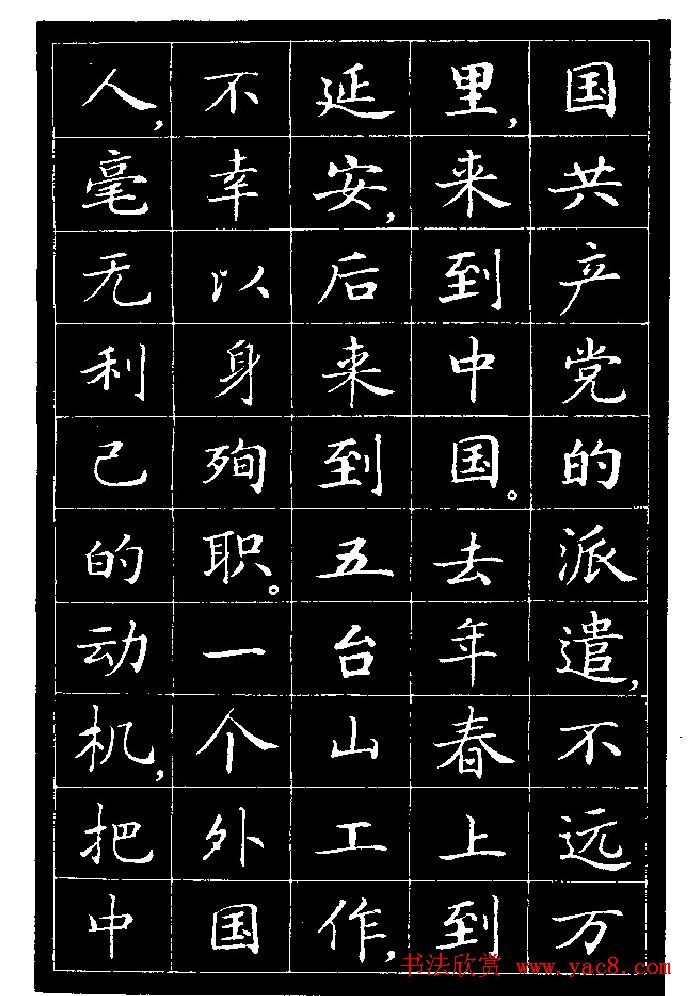 国共产党的派遣，不远万
里，来到中国。去年春上到
延安，后来到五台山工作，
不幸以身殉职。一个外国
人，毫无利己的动机，把中
书法欣赏 www.yac8.com